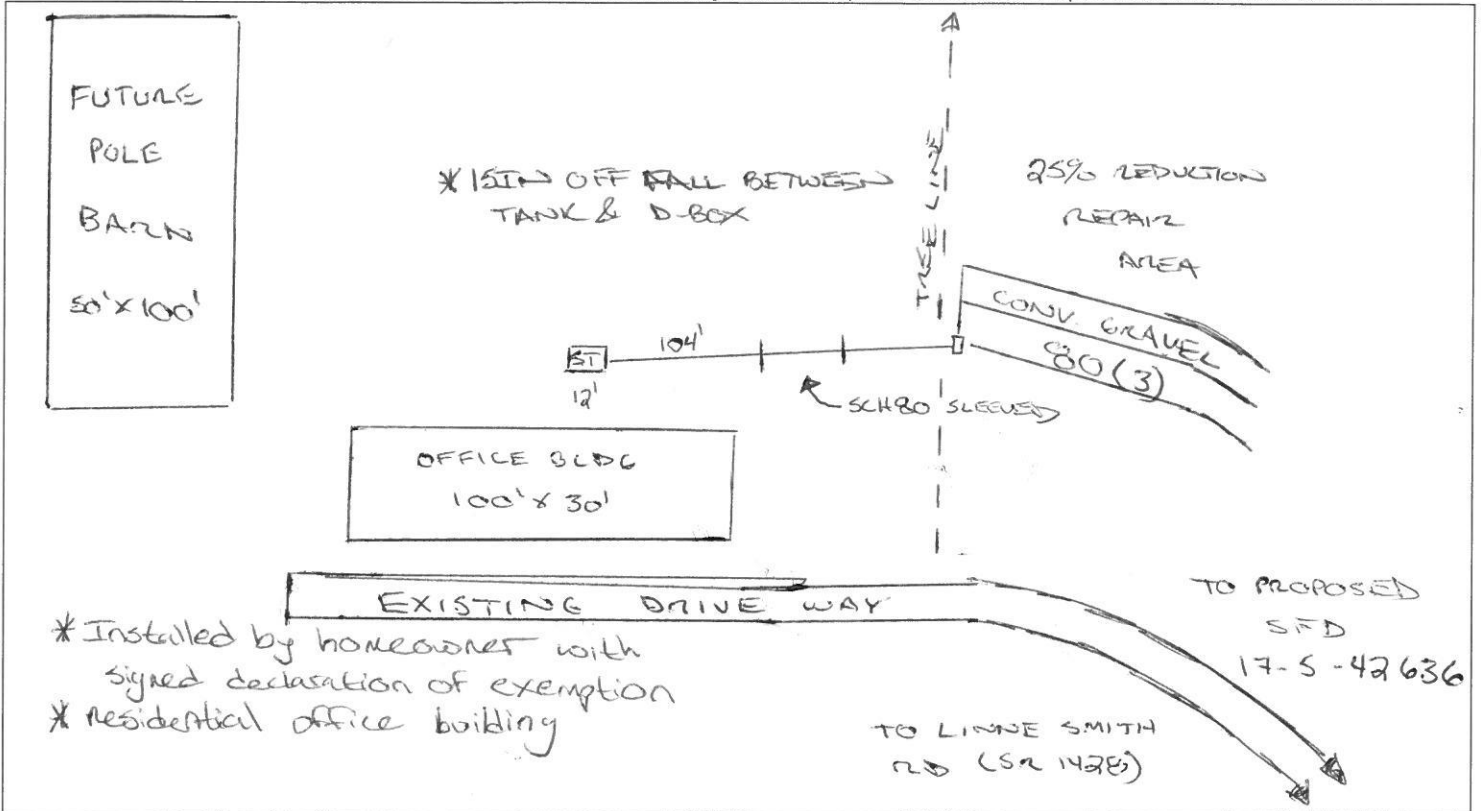 FUTURE
POLE
BARN
50' X 100'
* 15IN OFF FALL BETWEEN
TANK & D-BOX
TREE LINE
25% REDUCTION
REPAIR
AREA
CONV. GRAVEL
80 (3)
ST
104'
12'
SCH80 SLEEVED
OFFICE BLDG
100' X 30'
EXISTING DRIVE WAY
TO PROPOSED
SFD
17-S-42636
* Installed by homeowner with
signed declaration of exemption
* residential office building
TO LINNE SMITH
RD (SR 1428)